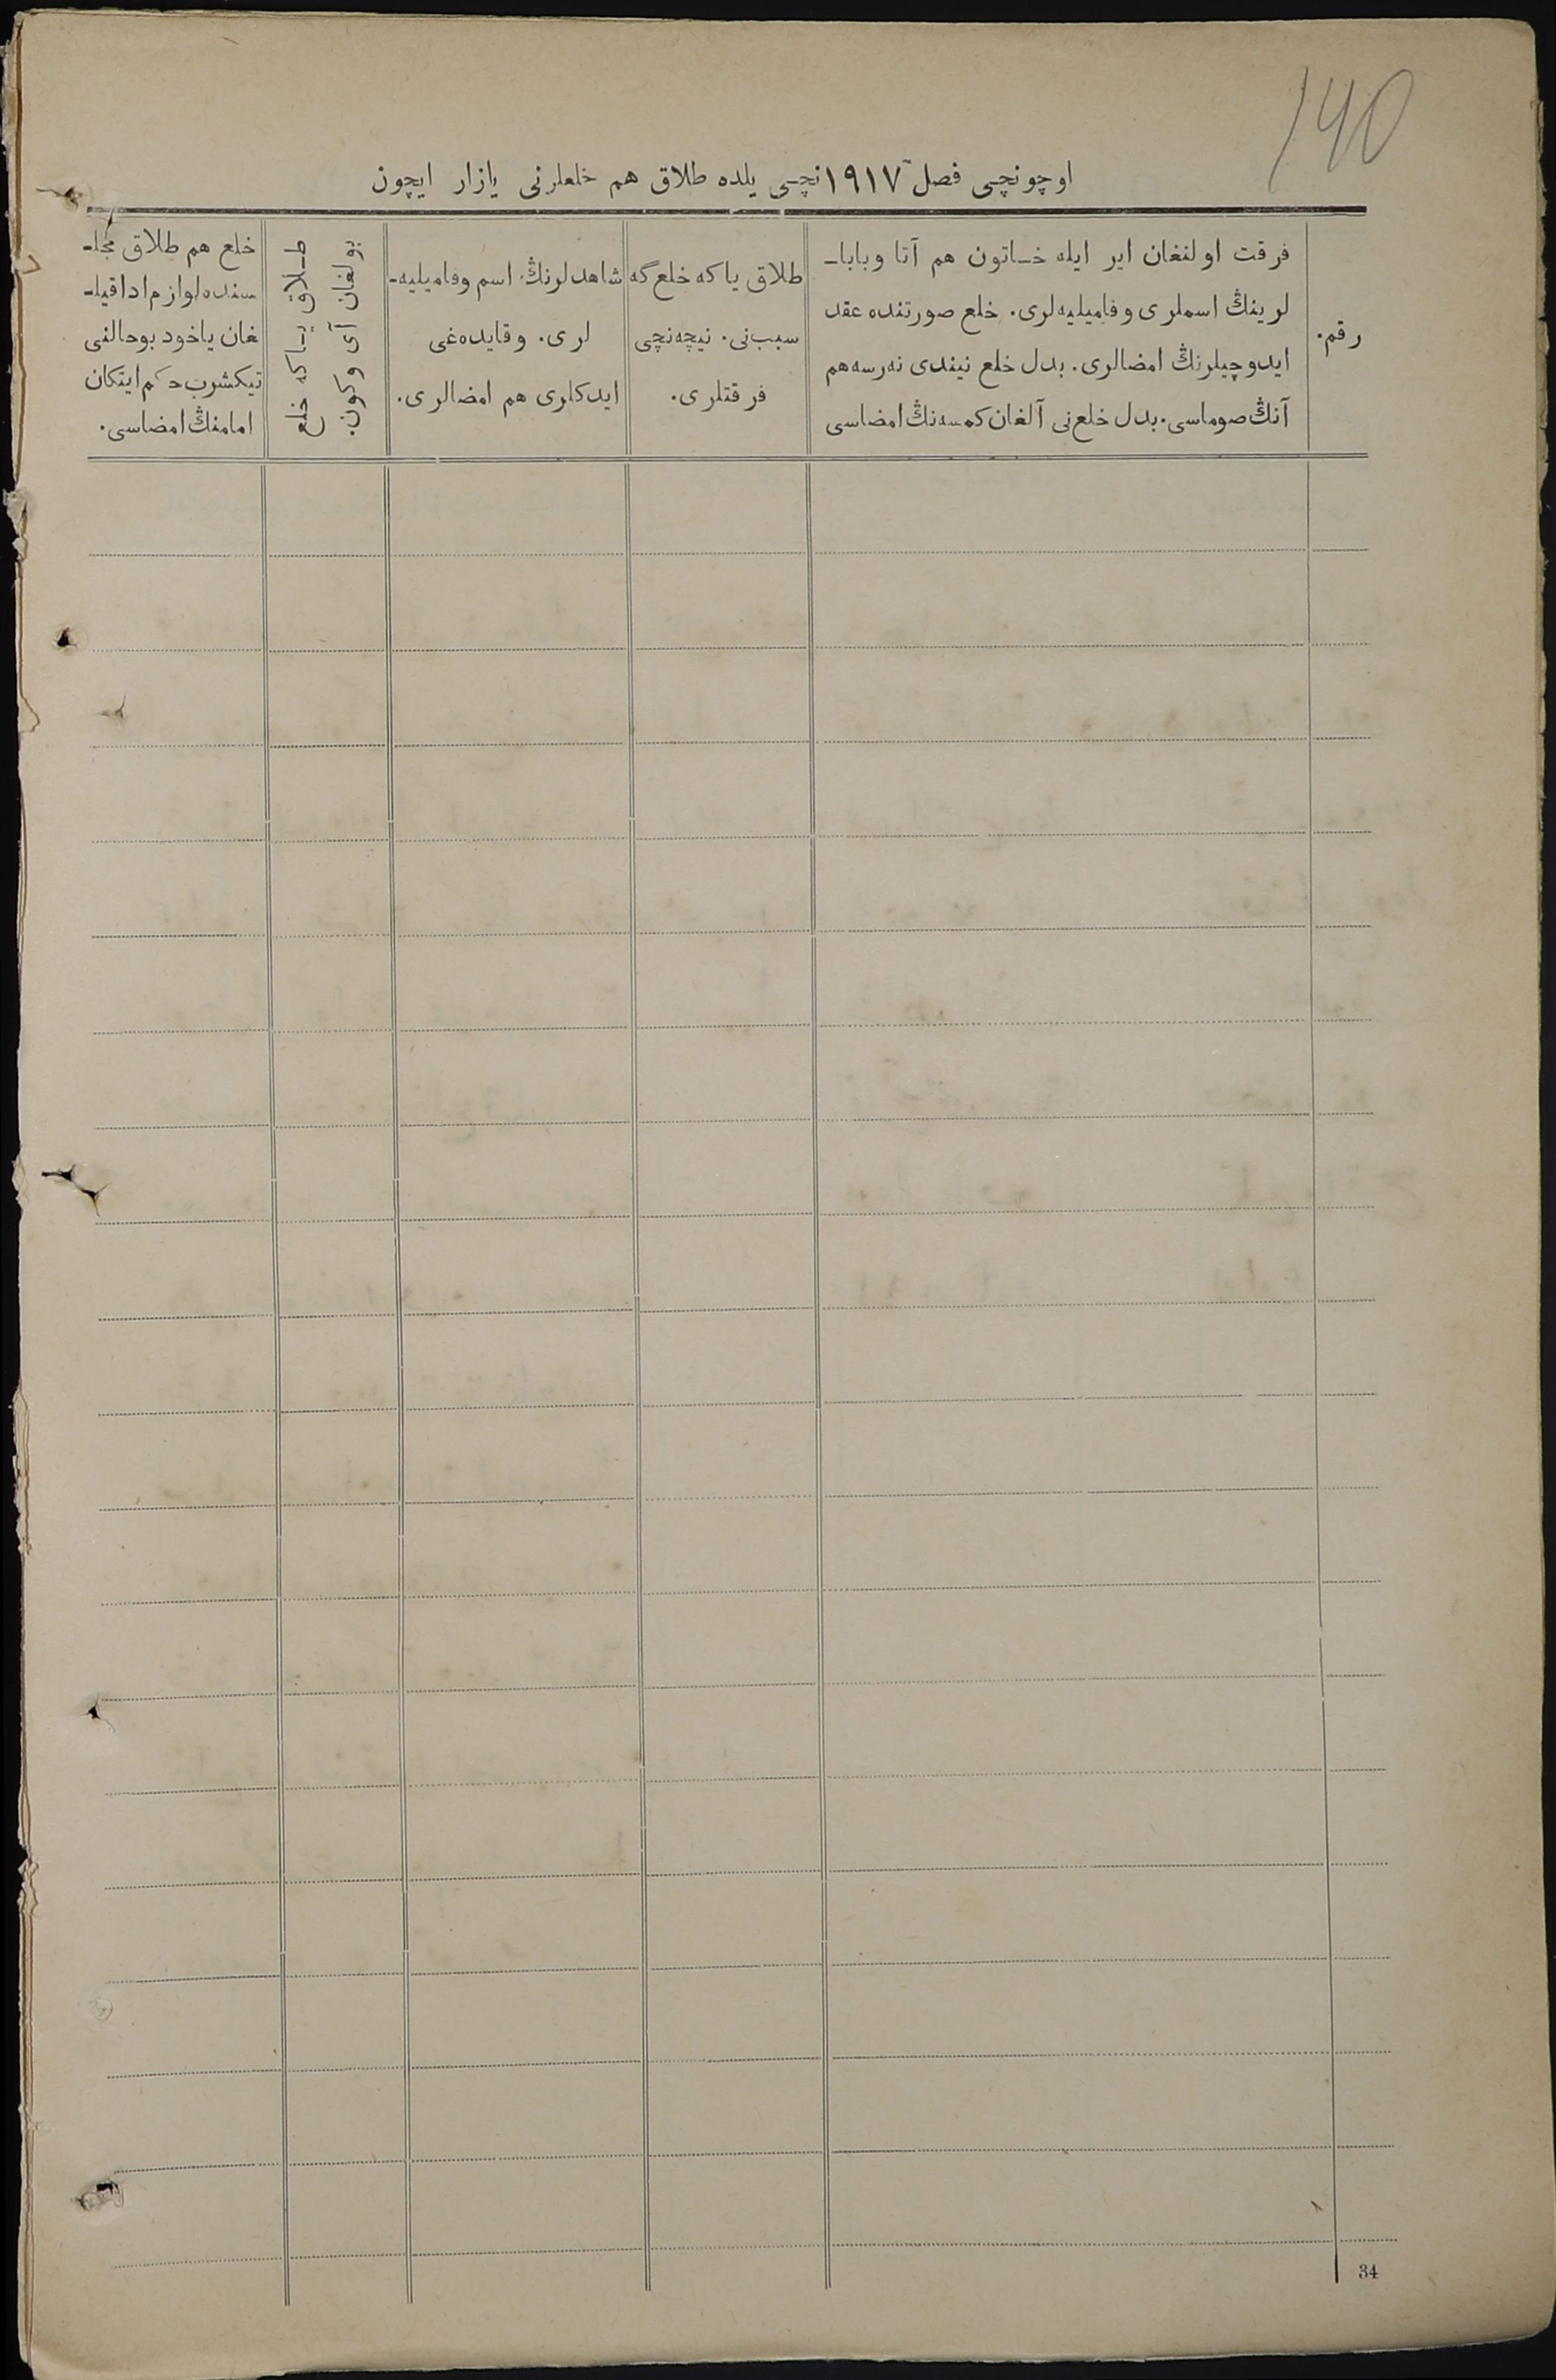 140
اوچونچی فصل ١٩١٧نچی یلده طلاق هم خلعلرنی یازار ایچون
رقم.
فرقت اولنغان ایر ایله خاتون هم آتا وبابا-
لرینڭ اسملری وفامیلیه‌لری. خلع صورتنده عقد
ایدوچیلرنڭ امضالری. بدل خلع نیندی نه‌رسه هم
آنڭ صوماسی. بدل خلع‌نی آلغان کمسه‌نڭ امضاسی
طلاق یاکه خلع گه
سبب‌نی. نیچه‌نچی
فرقتلری.
شاهدلرنڭ اسم وفامیلیه-
لری. وقایده‌غی
ایدکلری هم امضالری.
طلاق یاکه خلع
بولغان آی وکون.
خلع هم طلاق مجل-
سنده لوازم ادا قیل-
غان یاخود بوحالنی
تیکشرب حکم ایتکان
امامنڭ امضاسی.
34